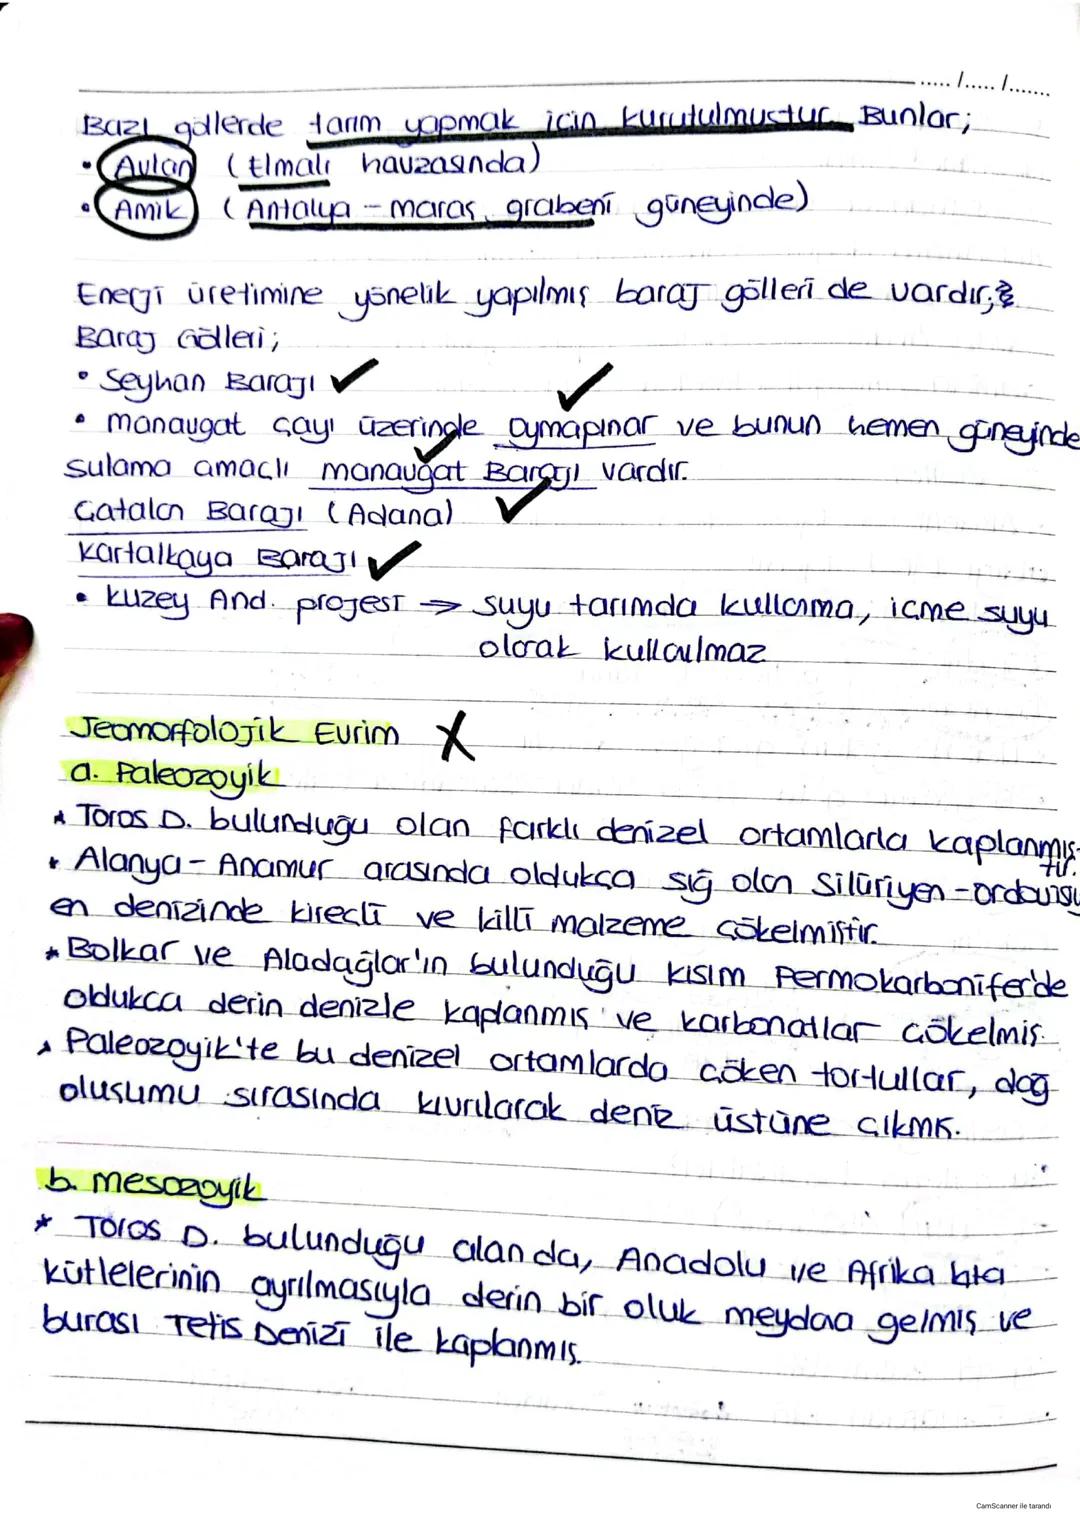 ...../...../.......
Bazı göllerde tarım yapmak için kurutulmuştur. Bunlar;
• Avlan (Elmalı havzasında)
• Amik (Antalya - maraş grabeni güneyinde)
Enerji üretimine yönelik yapılmış baraj gölleri de vardır;
Baraj Gölleri;
• Seyhan Barajı ✓
• manavgat çayı üzerinde Oymapınar ve bunun hemen güneyinde
sulama amaçlı manavgat Barajı vardır.
Çatalan Barajı (Adana)
Kartalkaya Barajı ✓
• Kuzey And. projesi → suyu tarımda kullanma, içme suyu
olarak kullanılmaz
Jeomorfolojik Evrim X
a. Paleozoyik
* Toros D. bulunduğu olan farklı denizel ortamlarla kaplanmış-
tır.
* Alanya - Anamur arasında oldukça sığ olan Silüriyen - Ordovisy
en denizinde kireçli ve killi malzeme çökelmiştir.
* Bolkar ve Aladağlar'ın bulunduğu kısım Permokarbonifer'de
oldukça derin denizle kaplanmış ve karbonatlar çökelmiş.
* Paleozoyik'te bu denizel ortamlarda çöken tortullar, dağ
oluşumu sırasında kıvrılarak deniz üstüne çıkmış.
b. mesozoyik
* Toros D. bulunduğu alanda, Anadolu ve Afrika kıta
kütlelerinin ayrılmasıyla derin bir oluk meydana gelmiş ve
burası Tetis Denizi ile kaplanmış.
CamScanner ile tarandı